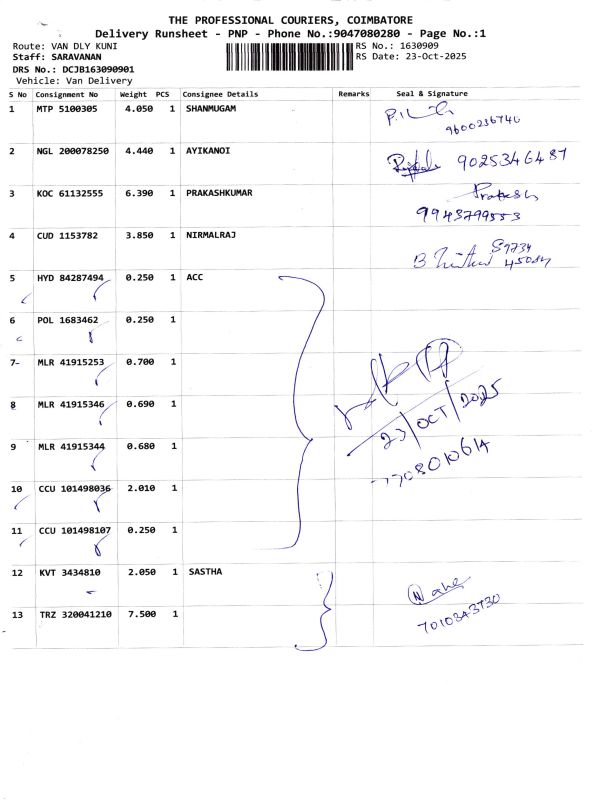 THE PROFESSIONAL COURIERS, COIMBATORE
Delivery Runsheet - PNP - Phone No.:9047080280 - Page No.:1
Route: VAN DLY KUNI RS No.: 1630909
Staff: SARAVANAN RS Date: 23-Oct-2025
DRS No.: DCJB163090901
Vehicle: Van Delivery
S No Consignment No Weight PCS Consignee Details Remarks Seal & Signature
1 MTP 5100305 4.050 1 SHANMUGAM
9600236746
2 NGL 200078250 4.440 1 AYIKANOI 9025346487
3 KOC 61132555 6.390 1 PRAKASHKUMAR Prakash
9943799553
4 CUD 1153782 3.850 1 NIRMALRAJ
5 HYD 84287494 0.250 1 ACC
6 POL 1683462 0.250 1
7 MLR 41915253 0.700 1
8 MLR 41915346 0.690 1
9 MLR 41915344 0.680 1
23/OCT/2025
7708010614
10 CCU 101498036 2.010 1
11 CCU 101498107 0.250 1
12 KVT 3434810 2.050 1 SASTHA
13 TRZ 320041210 7.500 1
7010343730